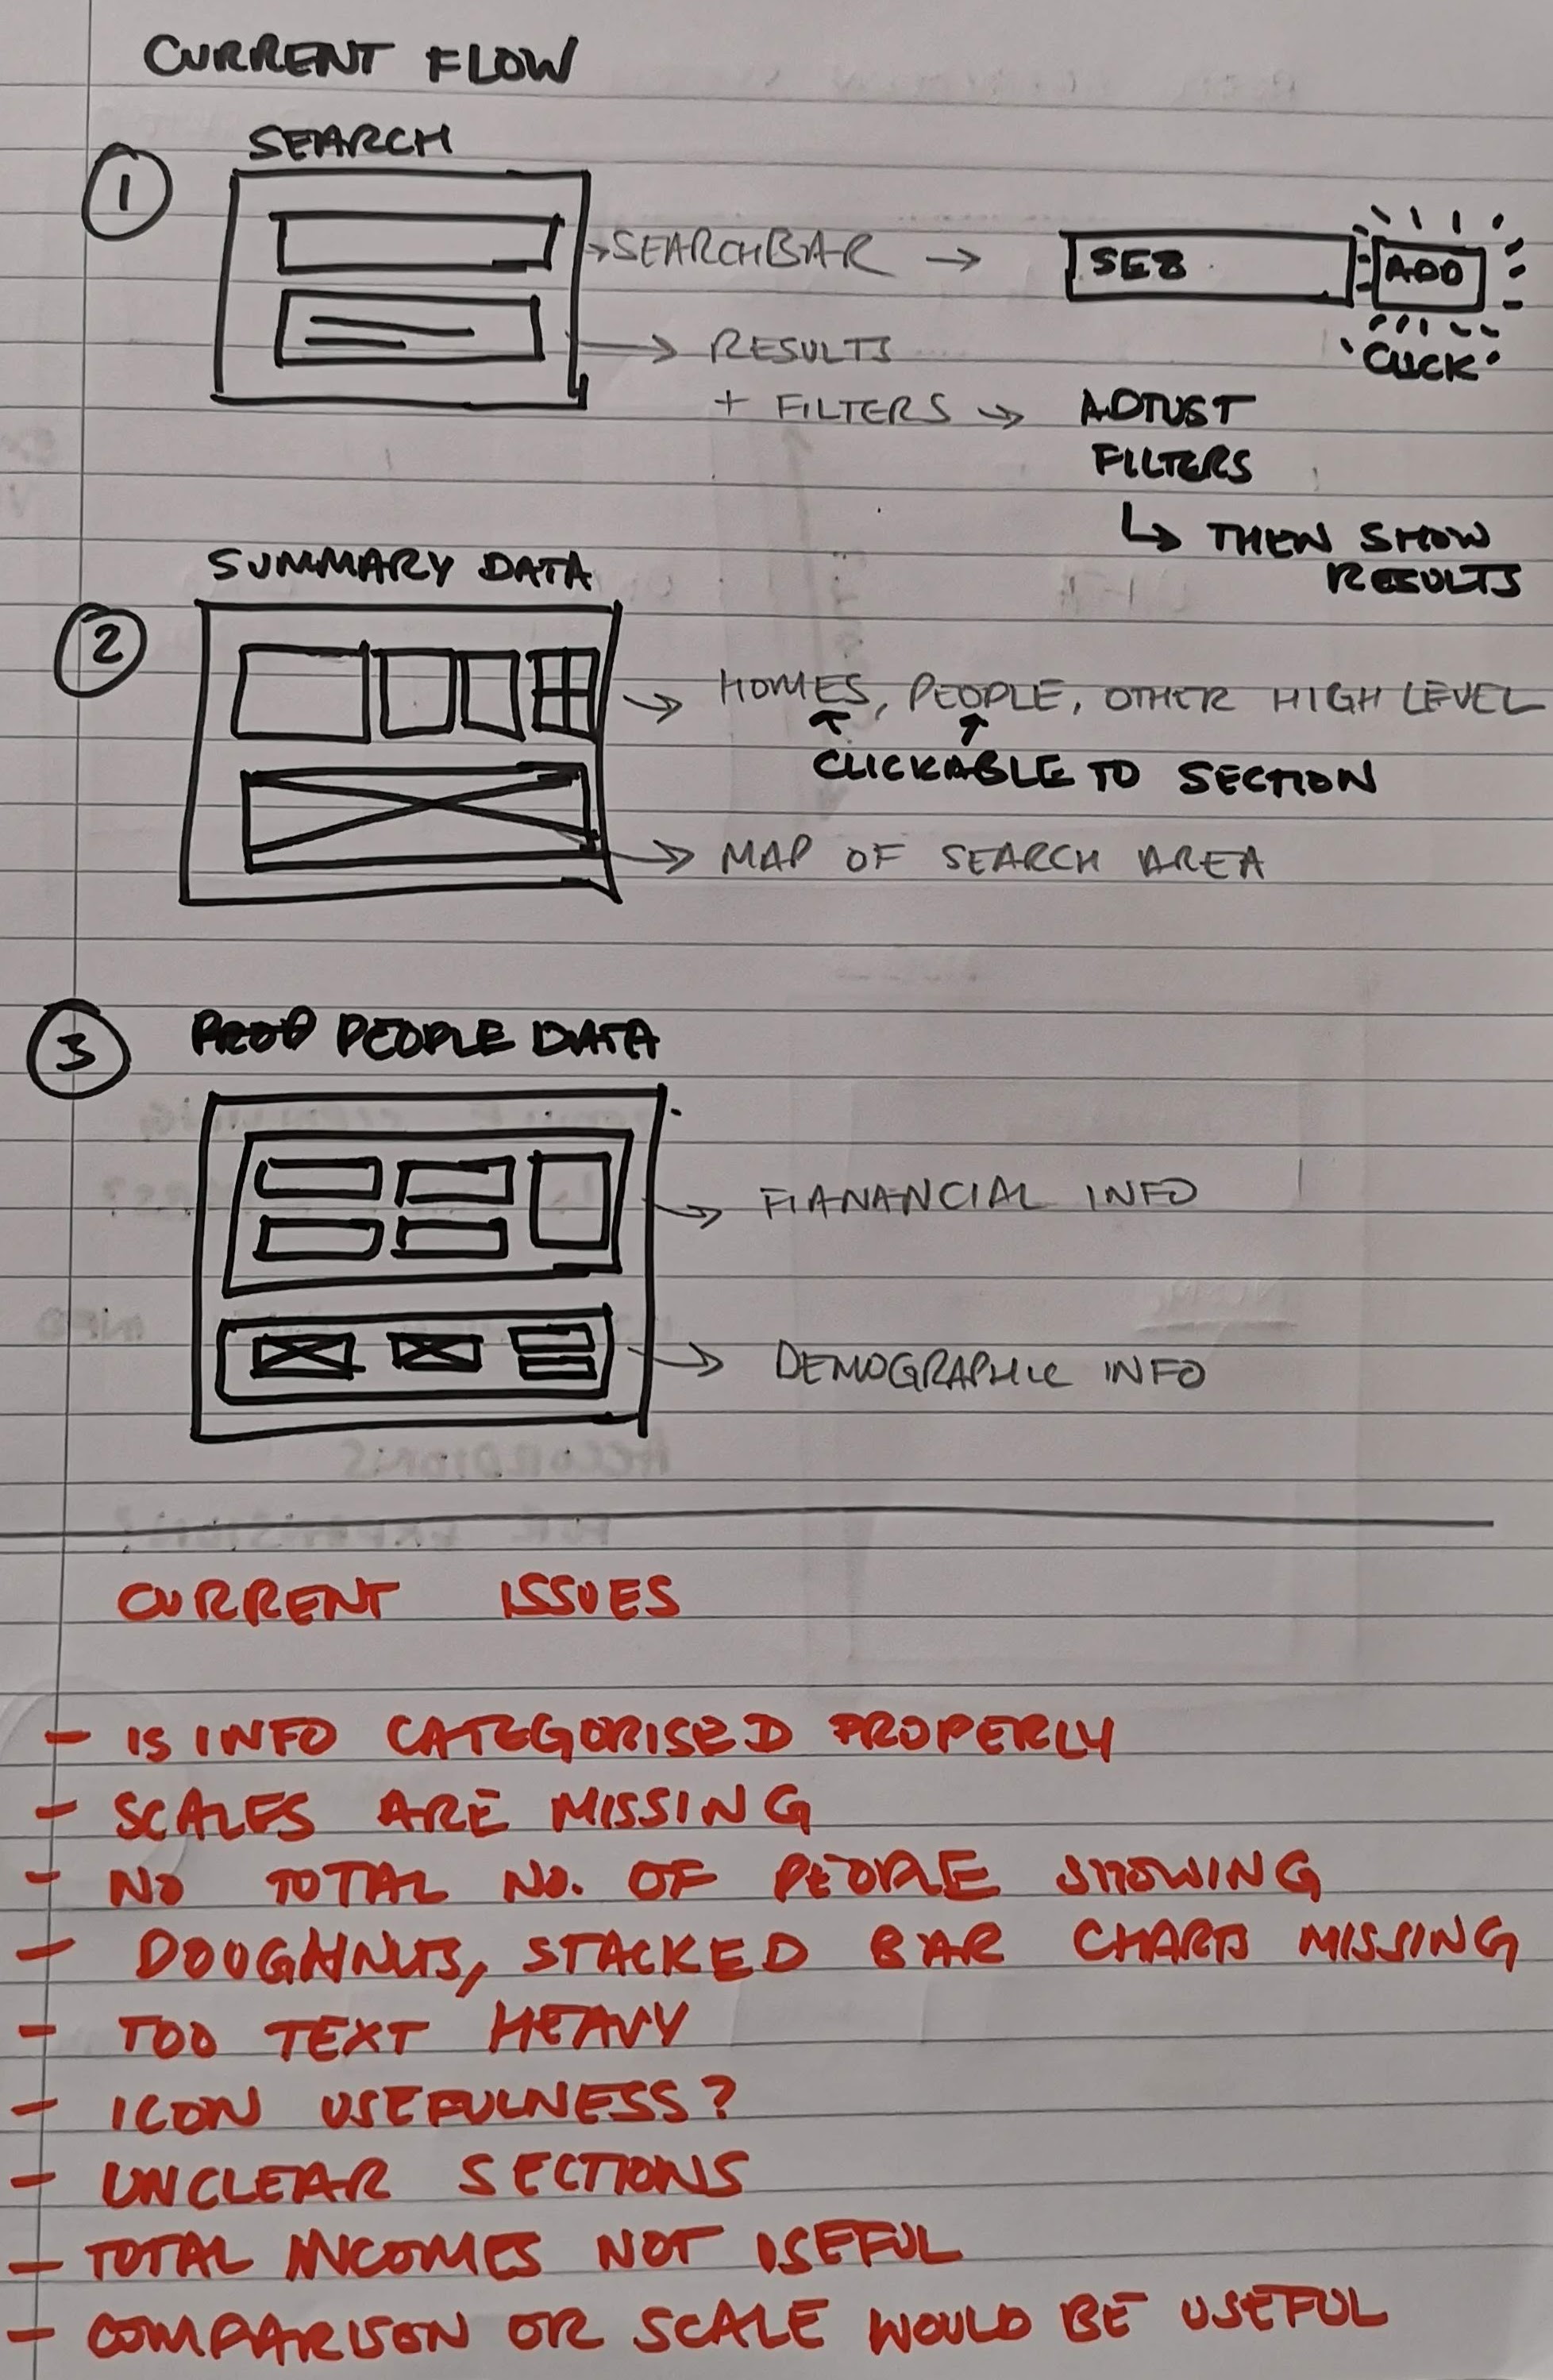 CURRENT FLOW
1
SEARCH
SEARCHBAR
SE8
ADD
'CLICK'
RESULTS
+ FILTERS
ADJUST
FILTERS
THEN SHOW
RESULTS
2
SUMMARY DATA
HOMES, PEOPLE, OTHER HIGH LEVEL
CLICKABLE TO SECTION
MAP OF SEARCH AREA
3
PEOPLE DATA
FIANANCIAL INFO
DEMOGRAPHIC INFO
CURRENT ISSUES
- IS INFO CATEGORISED PROPERLY
- SCALES ARE MISSING
- NO TOTAL NO. OF PEOPLE SHOWING
- DOUGHNUTS, STACKED BAR CHARTS MISSING
- TOO TEXT HEAVY
- ICON USEFULNESS?
- UNCLEAR SECTIONS
- TOTAL INCOMES NOT USEFUL
- COMPARISON OR SCALE WOULD BE USEFUL